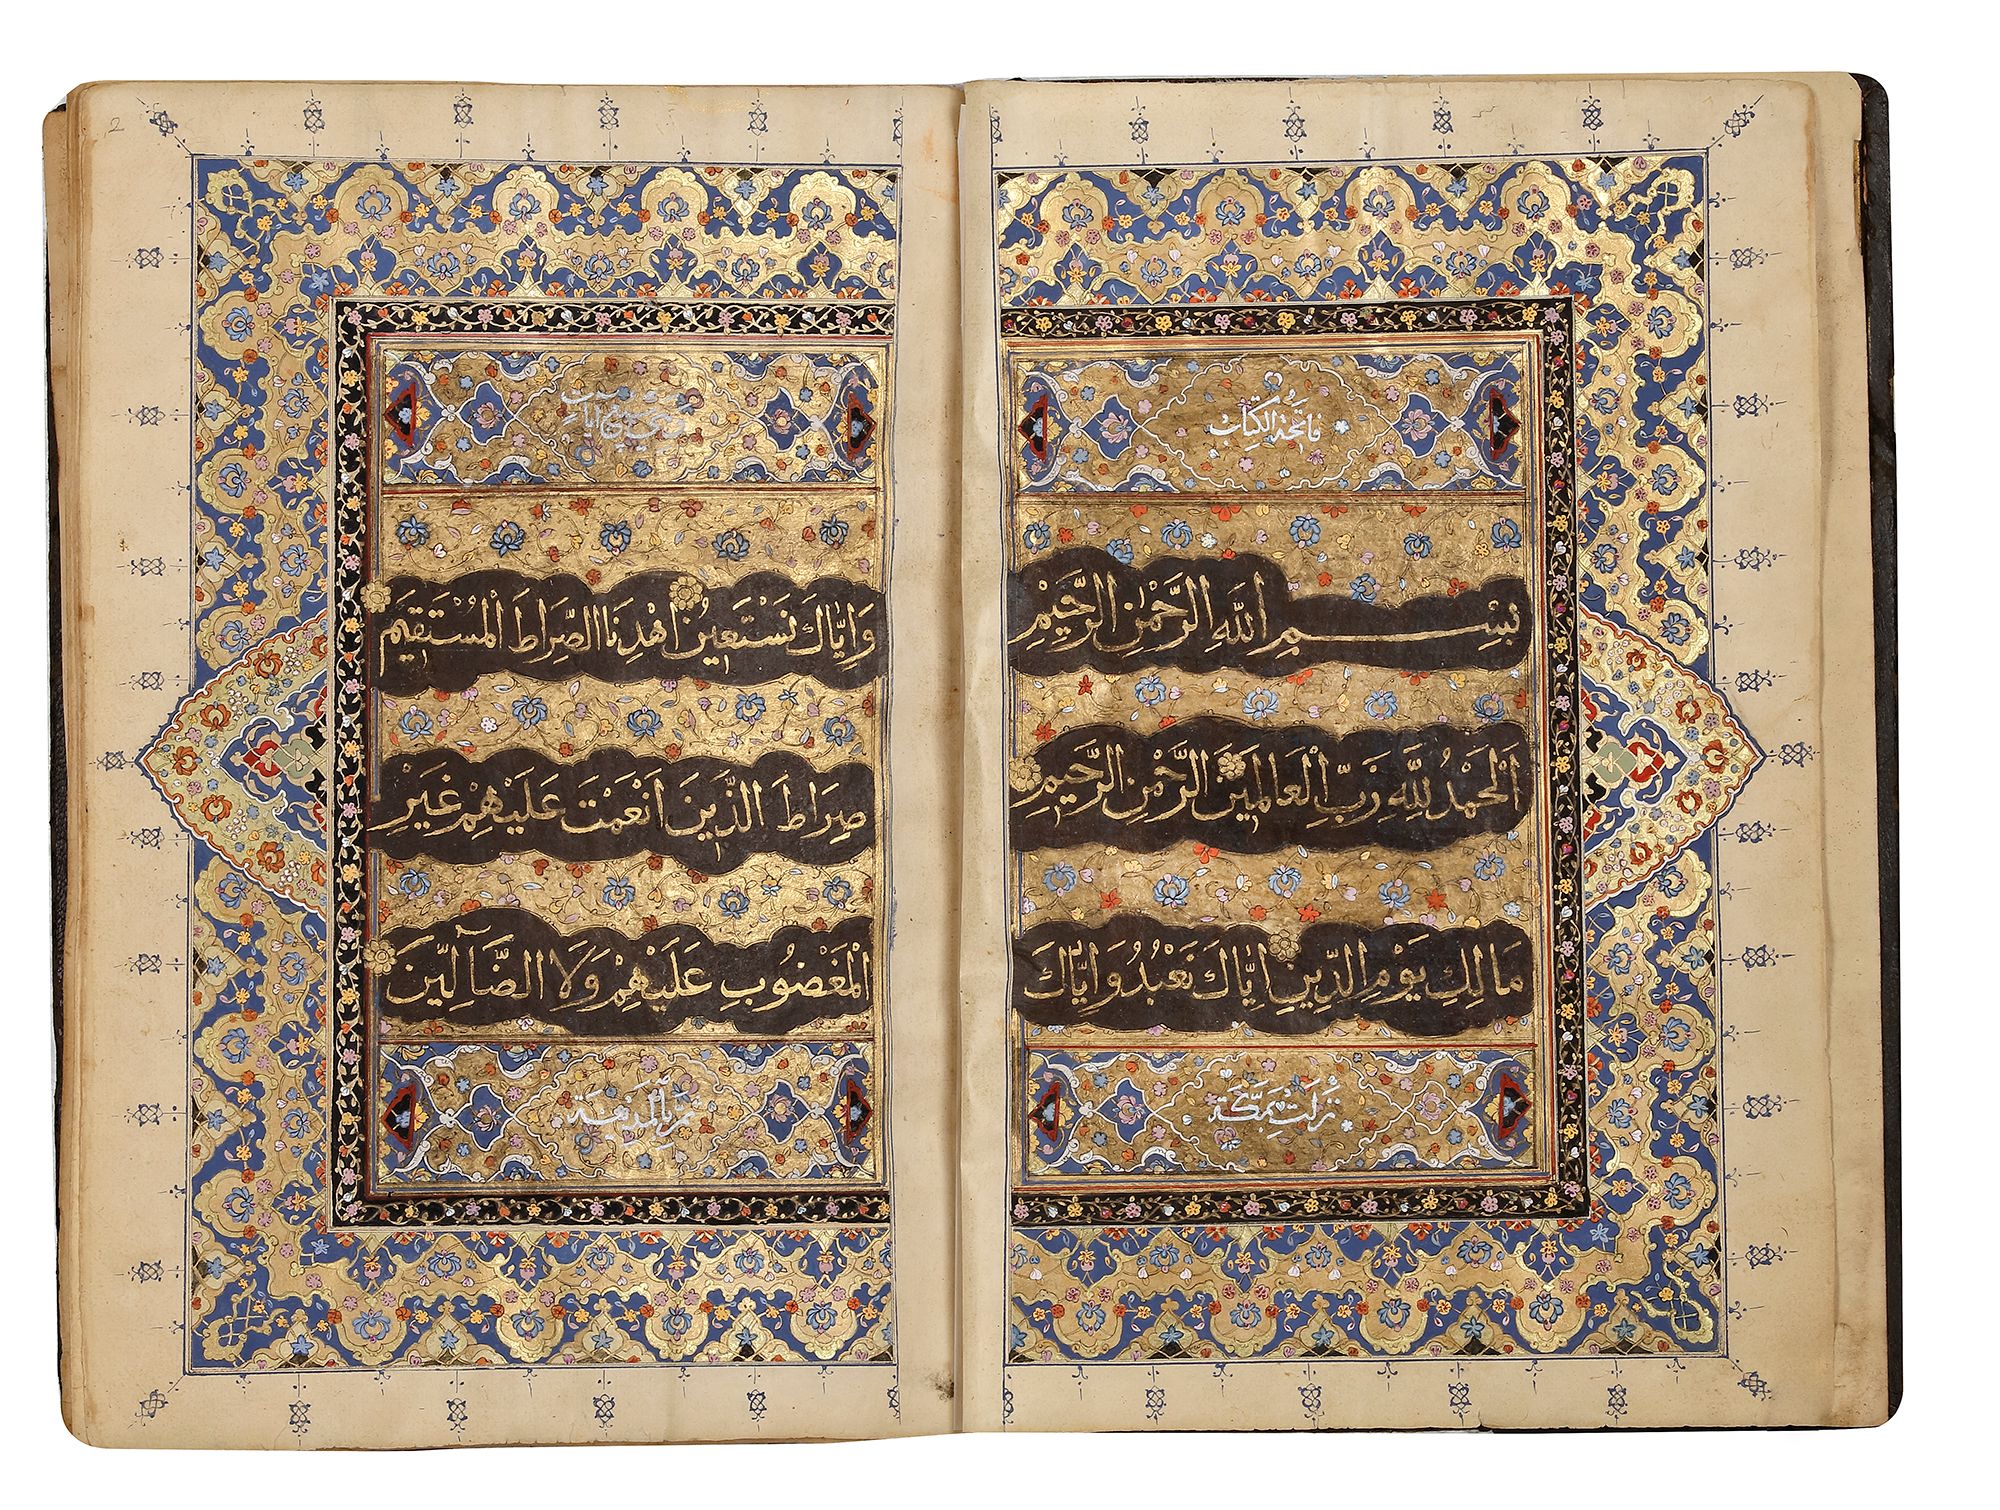 فَاتِحَةُ الْكِتَابِ
بِسْمِ اللّٰهِ الرَّحْمٰنِ الرَّحِيْمِ
اَلْحَمْدُ لِلّٰهِ رَبِّ الْعَالَمِيْنَ الرَّحْمٰنِ الرَّحِيْمِ
مَالِكِ يَوْمِ الدِّيْنِ اِيَّاكَ نَعْبُدُ وَاِيَّاكَ
نَزَلَتْ بِمَكَّةَ
وهي ايات
وَاِيَّاكَ نَسْتَعِيْنُ اِهْدِنَا الصِّرَاطَ الْمُسْتَقِيْمَ
صِرَاطَ الَّذِيْنَ اَنْعَمْتَ عَلَيْهِمْ غَيْرِ
الْمَغْضُوْبِ عَلَيْهِمْ وَلَا الضَّآلِّيْنَ
ثم بالمدينة
2